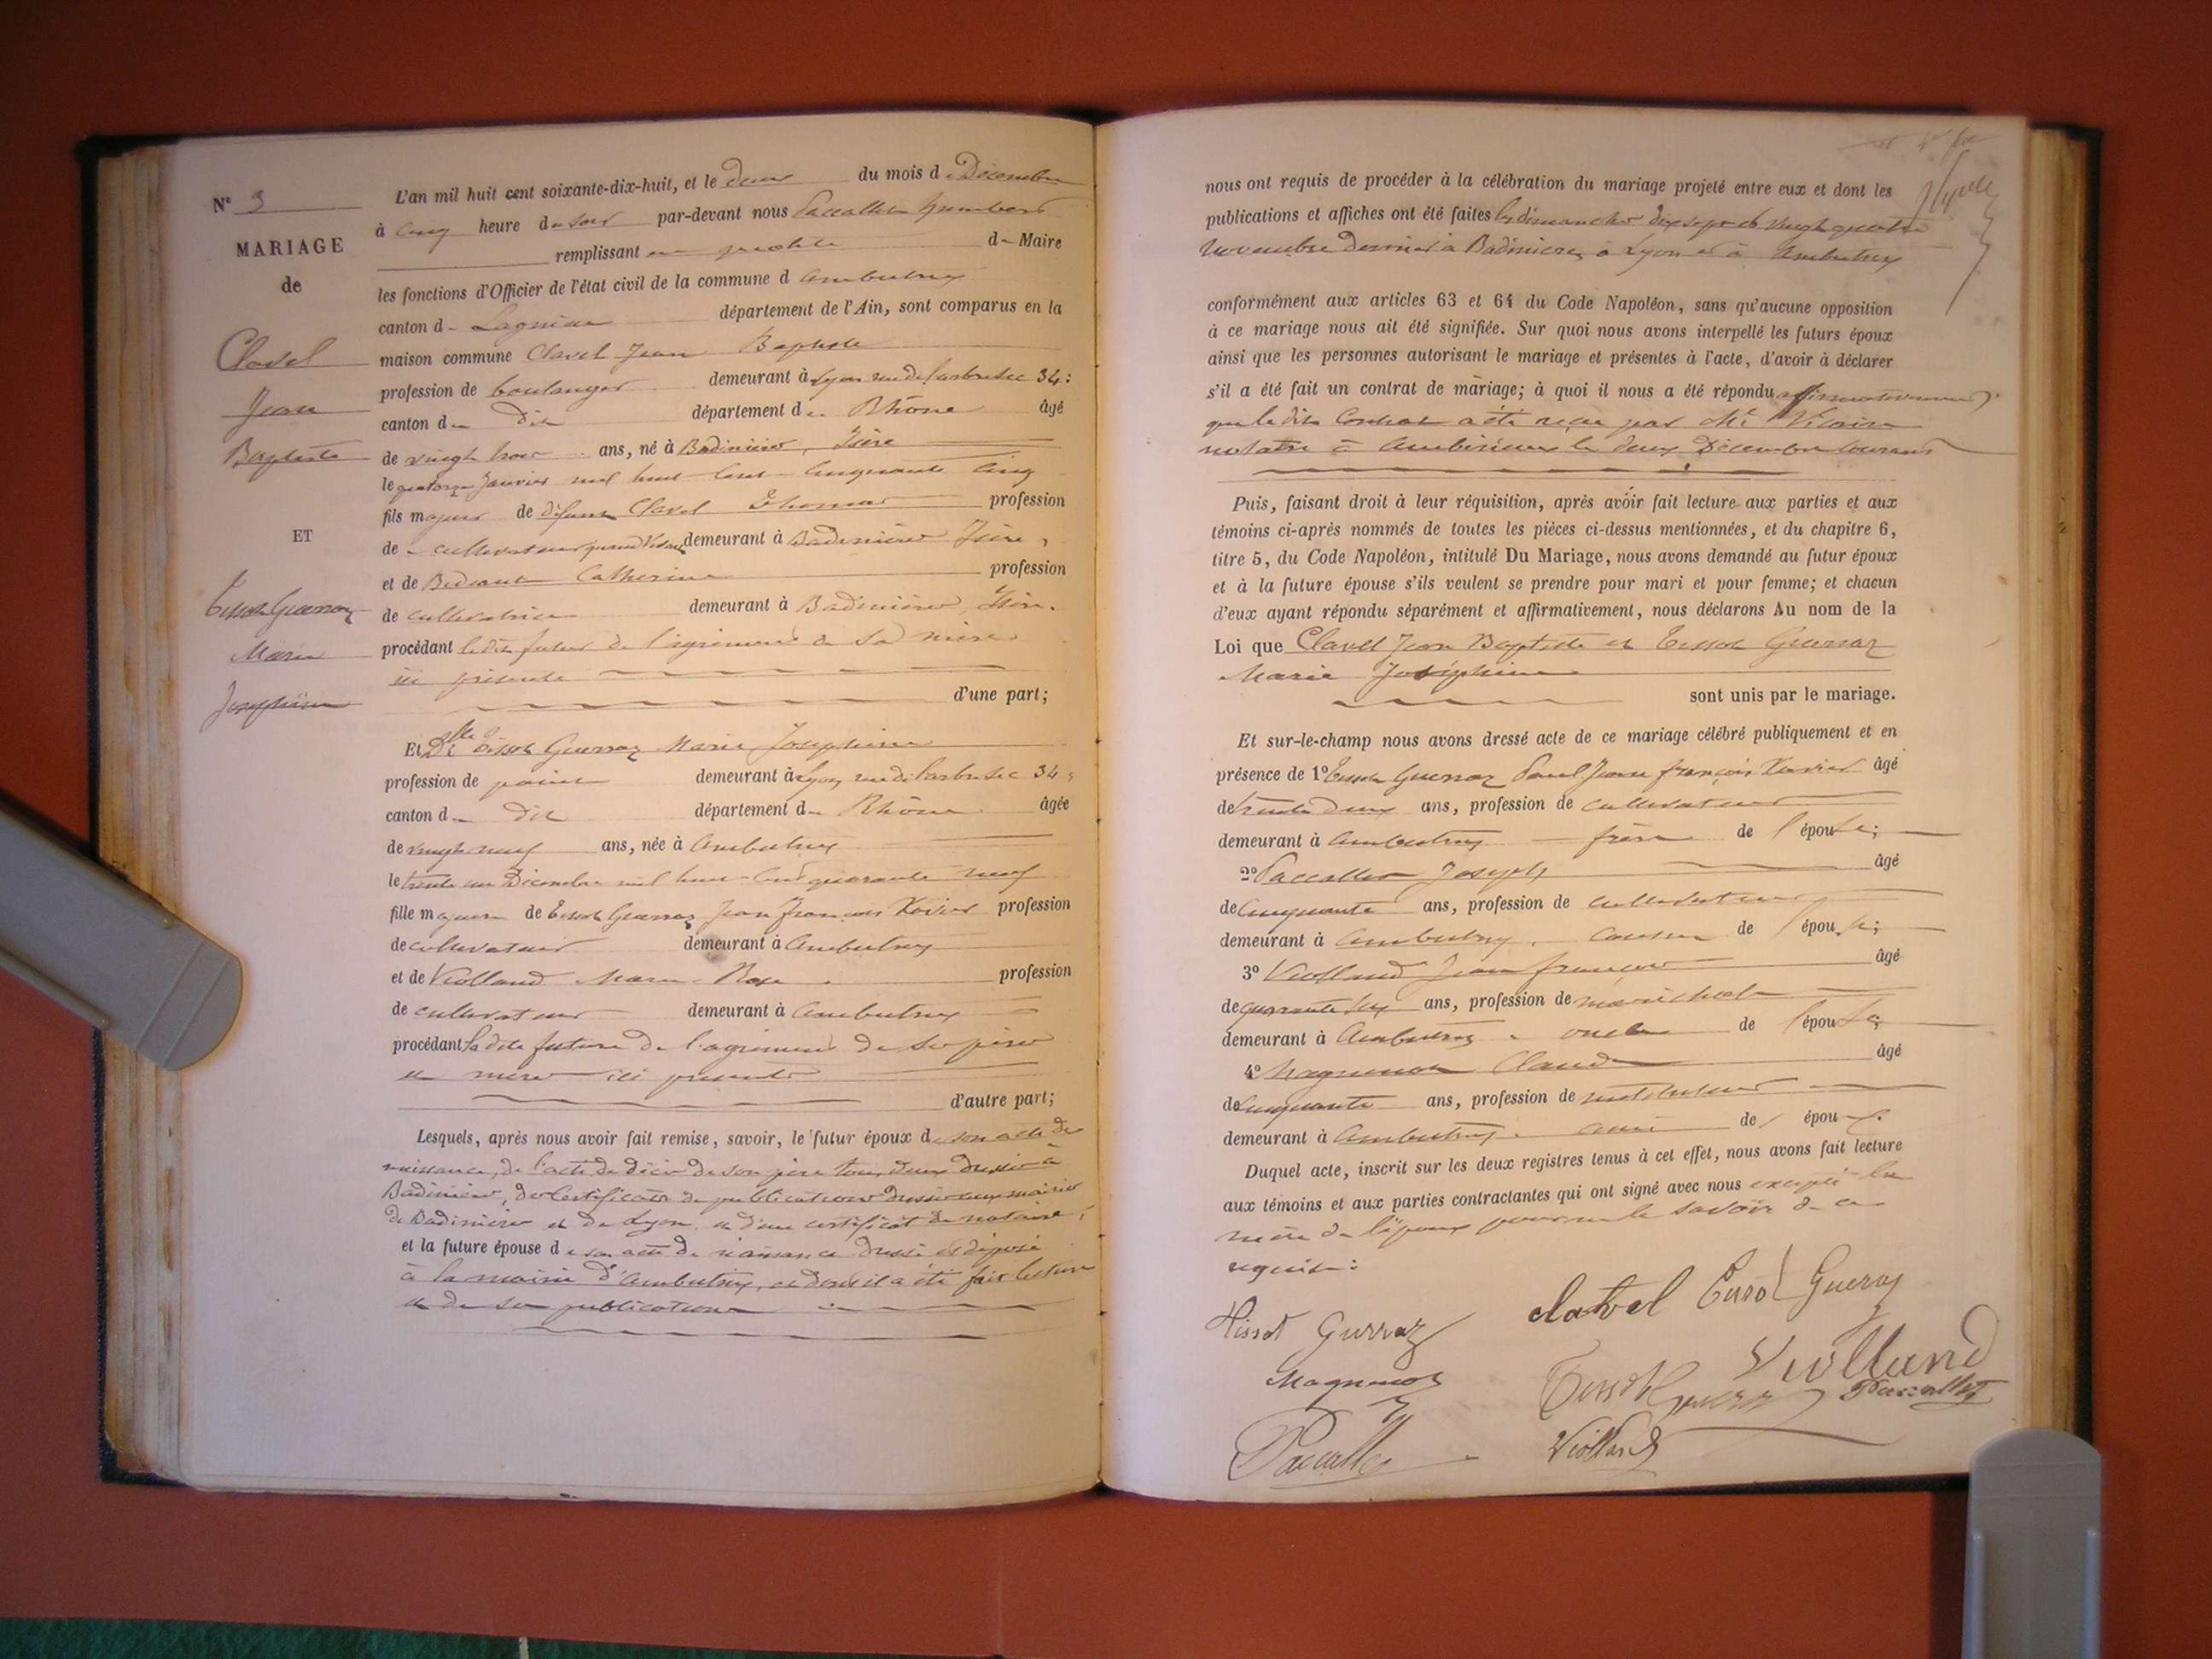 N° 3
MARIAGE
de
Clavel
Jean
Baptiste
ET
Tissot Guerraz
Marie
Joséphine
L'an mil huit cent soixante-dix-huit, et le deux du mois de Décembre
à cinq heure du soir par-devant nous Paccallet Humbert
remplissant en qualité de Maire
les fonctions d'Officier de l'état civil de la commune d Ambutrix
canton de Lagnieu département de l'Ain, sont comparus en la
maison commune Clavel Jean Baptiste
profession de boulanger demeurant à Lyon rue de l'arbre sec 34:
canton du dit département du Rhône âgé
de vingt trois ans, né à Badinières, Isère
le quatorze Janvier mil huit cent cinquante cinq
fils majeur de défunt Clavel Thomas profession
de cultivateur quand vivant demeurant à Badinières Isère,
et de Catherine profession
de cultivatrice demeurant à Badinières, Isère.
procédant le dit futur de l'agrément de sa mère
ici présente
d'une part;
Et Dlle Tissot Guerraz Marie Joséphine
profession de demeurant à Lyon, rue de l'arbre sec 34;
canton du dit département du Rhône âgée
de vingt neuf ans, née à Ambutrix
le trente un Décembre mil huit cent quarante neuf
fille majeure de Tissot Guerraz Jean François Xavier profession
de cultivateur demeurant à Ambutrix
et de Violland Marie Rose profession
de cultivateur demeurant à Ambutrix
procédant la dite future de l'agrément de ses père
et mère ici présents
d'autre part;
Lesquels, après nous avoir fait remise, savoir, le futur époux de son acte de
naissance, de l'acte de décès de son père tous deux dressés à
Badinières, des certificats de publications dressés aux mairies
de Badinières et de Lyon, et d'un certificat de notaire;
et la future épouse de son acte de naissance dressé et déposé
à la mairie d'Ambutrix, et dont il a été fait lecture
et de ses publications
nous ont requis de procéder à la célébration du mariage projeté entre eux et dont les
publications et affiches ont été faites les dimanches dix sept et vingt quatre
Novembre dernier à Badinières, à Lyon et à Ambutrix
conformément aux articles 63 et 64 du Code Napoléon, sans qu'aucune opposition
à ce mariage nous ait été signifiée. Sur quoi nous avons interpellé les futurs époux
ainsi que les personnes autorisant le mariage et présentes à l'acte, d'avoir à déclarer
s'il a été fait un contrat de mariage; à quoi il nous a été répondu affirmativement
que le dit Contrat a été reçu par Me Vicaire
notaire à Ambérieux le deux Décembre courant
Puis, faisant droit à leur réquisition, après avoir fait lecture aux parties et aux
témoins ci-après nommés de toutes les pièces ci-dessus mentionnées, et du chapitre 6,
titre 5, du Code Napoléon, intitulé Du Mariage, nous avons demandé au futur époux
et à la future épouse s'ils veulent se prendre pour mari et pour femme; et chacun
d'eux ayant répondu séparément et affirmativement, nous déclarons Au nom de la
Loi que Clavel Jean Baptiste et Tissot Guerraz
Marie Joséphine
sont unis par le mariage.
Et sur-le-champ nous avons dressé acte de ce mariage célébré publiquement et en
présence de 1° Tissot Guerraz Paul Jean françois Xavier âgé
de trente deux ans, profession de cultivateur
demeurant à Ambutrix frère de l'épouse;
2° Paccallet Joseph âgé
de cinquante ans, profession de cultivateur
demeurant à Ambutrix, cousin de l'épouse;
3° Violland Jean françois âgé
de quarante six ans, profession de maréchal
demeurant à Ambutrix oncle de l'épouse;
4° Magnenot Claude âgé
de cinquante ans, profession de instituteur
demeurant à Ambutrix. ami de épou x.
Duquel acte, inscrit sur les deux registres tenus à cet effet, nous avons fait lecture
aux témoins et aux parties contractantes qui ont signé avec nous excepté la
mère de l'époux pour ne le savoir de ce
requise:
Tissot Guerraz
clavel Tissot Gueraz
Magnenot
Violland
Tissot Guerraz
Paccallet
Paccallet
Violland